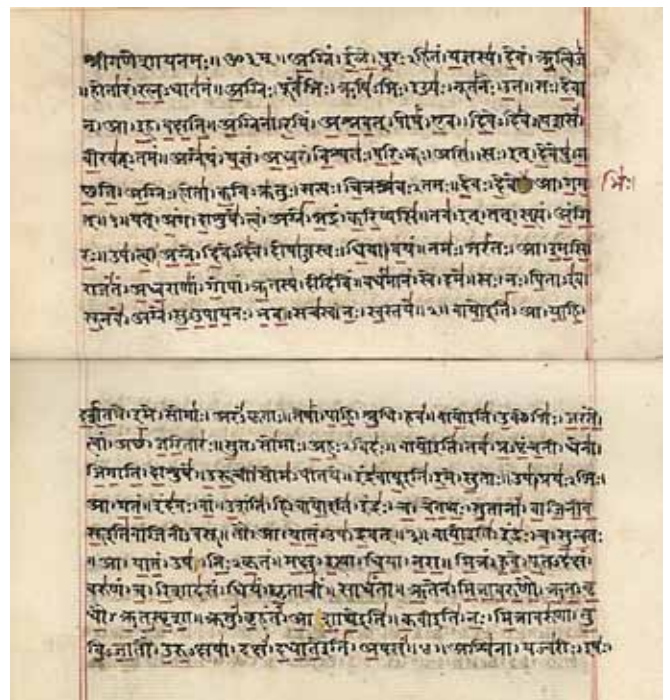 श्रीगणेशायनमः॥ॐ३म्॥अग्निं।ईळे।पुरःऽहितं।यज्ञस्य।देवं।ऋत्विजं
॥होतारं।रत्नऽधातमं॥अग्निः।पूर्वेभिः।ऋषिऽभिः।ईड्यः।नूतनैः।उत॥सः।देवा
न्।आ।इह।वक्षति॥अग्निना।रयिं।अश्नवत्।पोषं।एव।दिवेऽदिवे॥यशसं
वीरवत्ऽतमं॥अग्ने।यं।यज्ञं।अध्वरं।विश्वतः।परिऽभूः।असि॥सः।इत्।देवेषु।ग
च्छति॥अग्निः।होता।कविऽक्रतुः।सत्यः।चित्रश्रवःऽतमः॥देवः।देवे आ।गम भिः।
त्॥१॥यत्।अंग।दाशुषे।त्वं।अग्ने।भद्रं।करिष्यसि॥तव।इत्।तत्।सत्यं।अंगि
रः॥उप।त्वा।अग्ने।दिवेऽदिवे।दोषाऽवस्तः।धिया।वयं॥नमः।भरंतः।आ।इमसि॥
राजंतं।अध्वराणां।गोपां।ऋतस्य।दीदिविं॥वर्धमानं।स्वे।दमे॥सः।नः।पिताऽइव।
सूनवे।अग्ने।सुऽउपायनः।भव॥सचस्व।नः।स्वस्तये॥२॥वायोइति।आ।याहि।
दर्शत।इमे।सोमाः।अरंऽकृताः॥तेषां।पाहि।श्रुधि।हवं॥वायोइति।उक्थेभिः।जरंते।
त्वां।अच्छ।जरितारः॥सुतऽसोमाः।अहःऽविदः॥वायोइति।तव।प्रऽपृंचती।धेना।
जिगाति।दाशुषे॥उरूची।सोमऽपीतये॥इंद्रवायूइति।इमे।सुताः॥उप।प्रयःऽभिः।
आ।गतं॥इंदवः।वां।उशंति।हि॥वायोइति।इंद्रः।च।चेतथः।सुतानां।वाजिनीव
सूइतिवाजिनीऽवसू॥तौ।आ।यातं।उप।द्रवत्॥३॥वायोइति।इंद्रः।च।सुन्वतः
॥आ।यातं।उप।निःऽकृतं॥मक्षु।इत्था।धिया।नरा॥मित्रं।हुवे।पूतऽदक्षं।
वरुणं।च।रिशादसं॥धियं।घृताचीं।साधंता॥ऋतेन।मित्रावरुणौ।ऋतऽवृ
धौ।ऋतऽस्पृशा॥क्रतुं।बृहंतं।आशाथेइति॥कवीइति।नः।मित्रावरुणा।तु
विऽजातौ।उरुऽक्षया॥दक्षं।दधातेइति।अपसं॥४॥अश्विना।यज्वरीः।इषः।